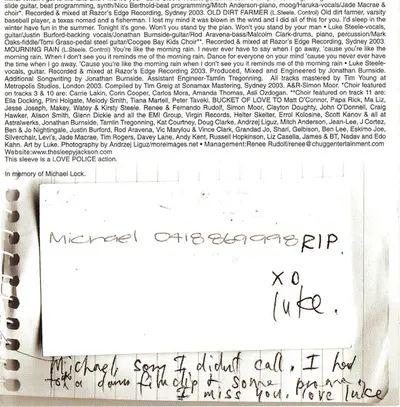 slide guitar, beat programming, synth/Nico Berthold-beat programming/Mitch Anderson-piano, moog/Haruka-vocals/Jade Macrae &
choir*. Recorded & mixed at Razor's Edge Recording, Sydney 2003. OLD DIRT FARMER (L. Steele, Control) Old dirt farmer, varsity
baseball player, a texas nomad and a fisherman. I lost my mind it was blown in the wind and I did all of this for you. I'd sleep in the
winter have fun in the summer. Tonight it's gone. Won't you stand by the plan. Won't you stand by your man • Luke Steele-vocals,
guitar/Justin Burford-backing vocals/Jonathan Burnside-guitar/Rod Aravena-bass/Malcolm Clark-drums, piano, percussion/Mark
Oaks-fiddle/Tomi Graso-pedal steel guitar/Coogee Bay Kids Choir**. Recorded & mixed at Razor's Edge Recording, Sydney 2003.
MOURNING RAIN (L. Steele, Control) You remind me of the morning rain. I never ever have to say when I go away, 'cause you're like the
morning rain. When I don't see you it reminds me of the morning rain. Dance for everyone on your mind 'cause you never ever have
the time when I go away, 'Cause you're like the morning rain when I don't see you it reminds me of the morning rain • Luke Steele-
vocals, guitar. Recorded & mixed at Razor's Edge Recording 2003. Produced, Mixed and Engineered by Jonathan Burnside.
Additional Songwriting by Jonathan Burnside. Assistant Engineer-Tamlin Tregonning. All tracks mastered by Tim Young at
Metropolis Studios, London 2003. Compiled by Tim Greig at Sonamax Mastering, Sydney 2003. A&R-Simon Moor. *Choir featured
on tracks 3 & 10 are: Carrie Lakin, Corin Cooper, Carlos Mora, Amanda Thomas, Asli Ozdogan. **Choir featured on track 11 are:
Ella Docking, Plini Holgate, Melody Smith, Tiana Martell, Peter Tavelai. BUCKET OF LOVE TO Matt O'Connor, Papa Rick, Ma Liz,
Jesse Joseph, Makey, Watey & Kristy Steele. Renee & Fernando Rudolf, Simon Moor, Clayton Doughty, John O'Donnell, Craig
Hawker, Alison Smith, Glenn Dickie and all the EMI Group, Virgin Records, Helter Skelter, Errol Kolosine, Scott Kanov & all at
Astralwerks, Jonathan Burnside, Tamlin Tregonning, Kat Courtney, Doug Clarke, Andrzej Liguz, Mitch Anderson, Jean-Lee, J Cortez,
Ben & Jo Nightingale, Justin Burford, Rod Aravena, Vic Marylou & Vince Clark, Grandad Jo, Sharl, Gelbison, Ben Lee, Eskimo Joe,
Silverchair, Levi's, Jade Macrae, Tim Rogers, Davey Lane, Andy Kent, Russell Hopkinson, Liz Casella, James & BT, Nadav and Edo
Kahn. Art by Luke. Photography by Andrzej Liguz/moreimages.net • Management:Renee Rudolf/renee@chuggentertainment.com
Website:www.thesleepyjackson.com
This sleeve is a LOVE POLICE action.
In memory of Michael Lock.
Michael 0418869998 RIP.
xo
luke.
Michael, sorry I didn't call, I had
to a damn filmclip & some promo.
I miss you. love luke